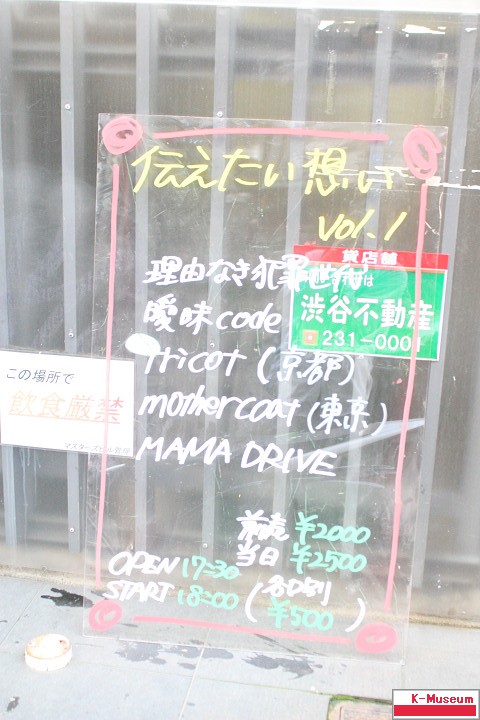 伝えたい想い
vol.1
理由なき犯罪世代
曖昧code
tricot (京都)
mothercoat (東京)
MAMA DRIVE
前売 ¥2000
当日 ¥2500
OPEN 17=30
START 18=00
(各D別 ¥500)
貸店舗
渋谷不動産
231-000
この場所で
飲食厳禁
K-Museum